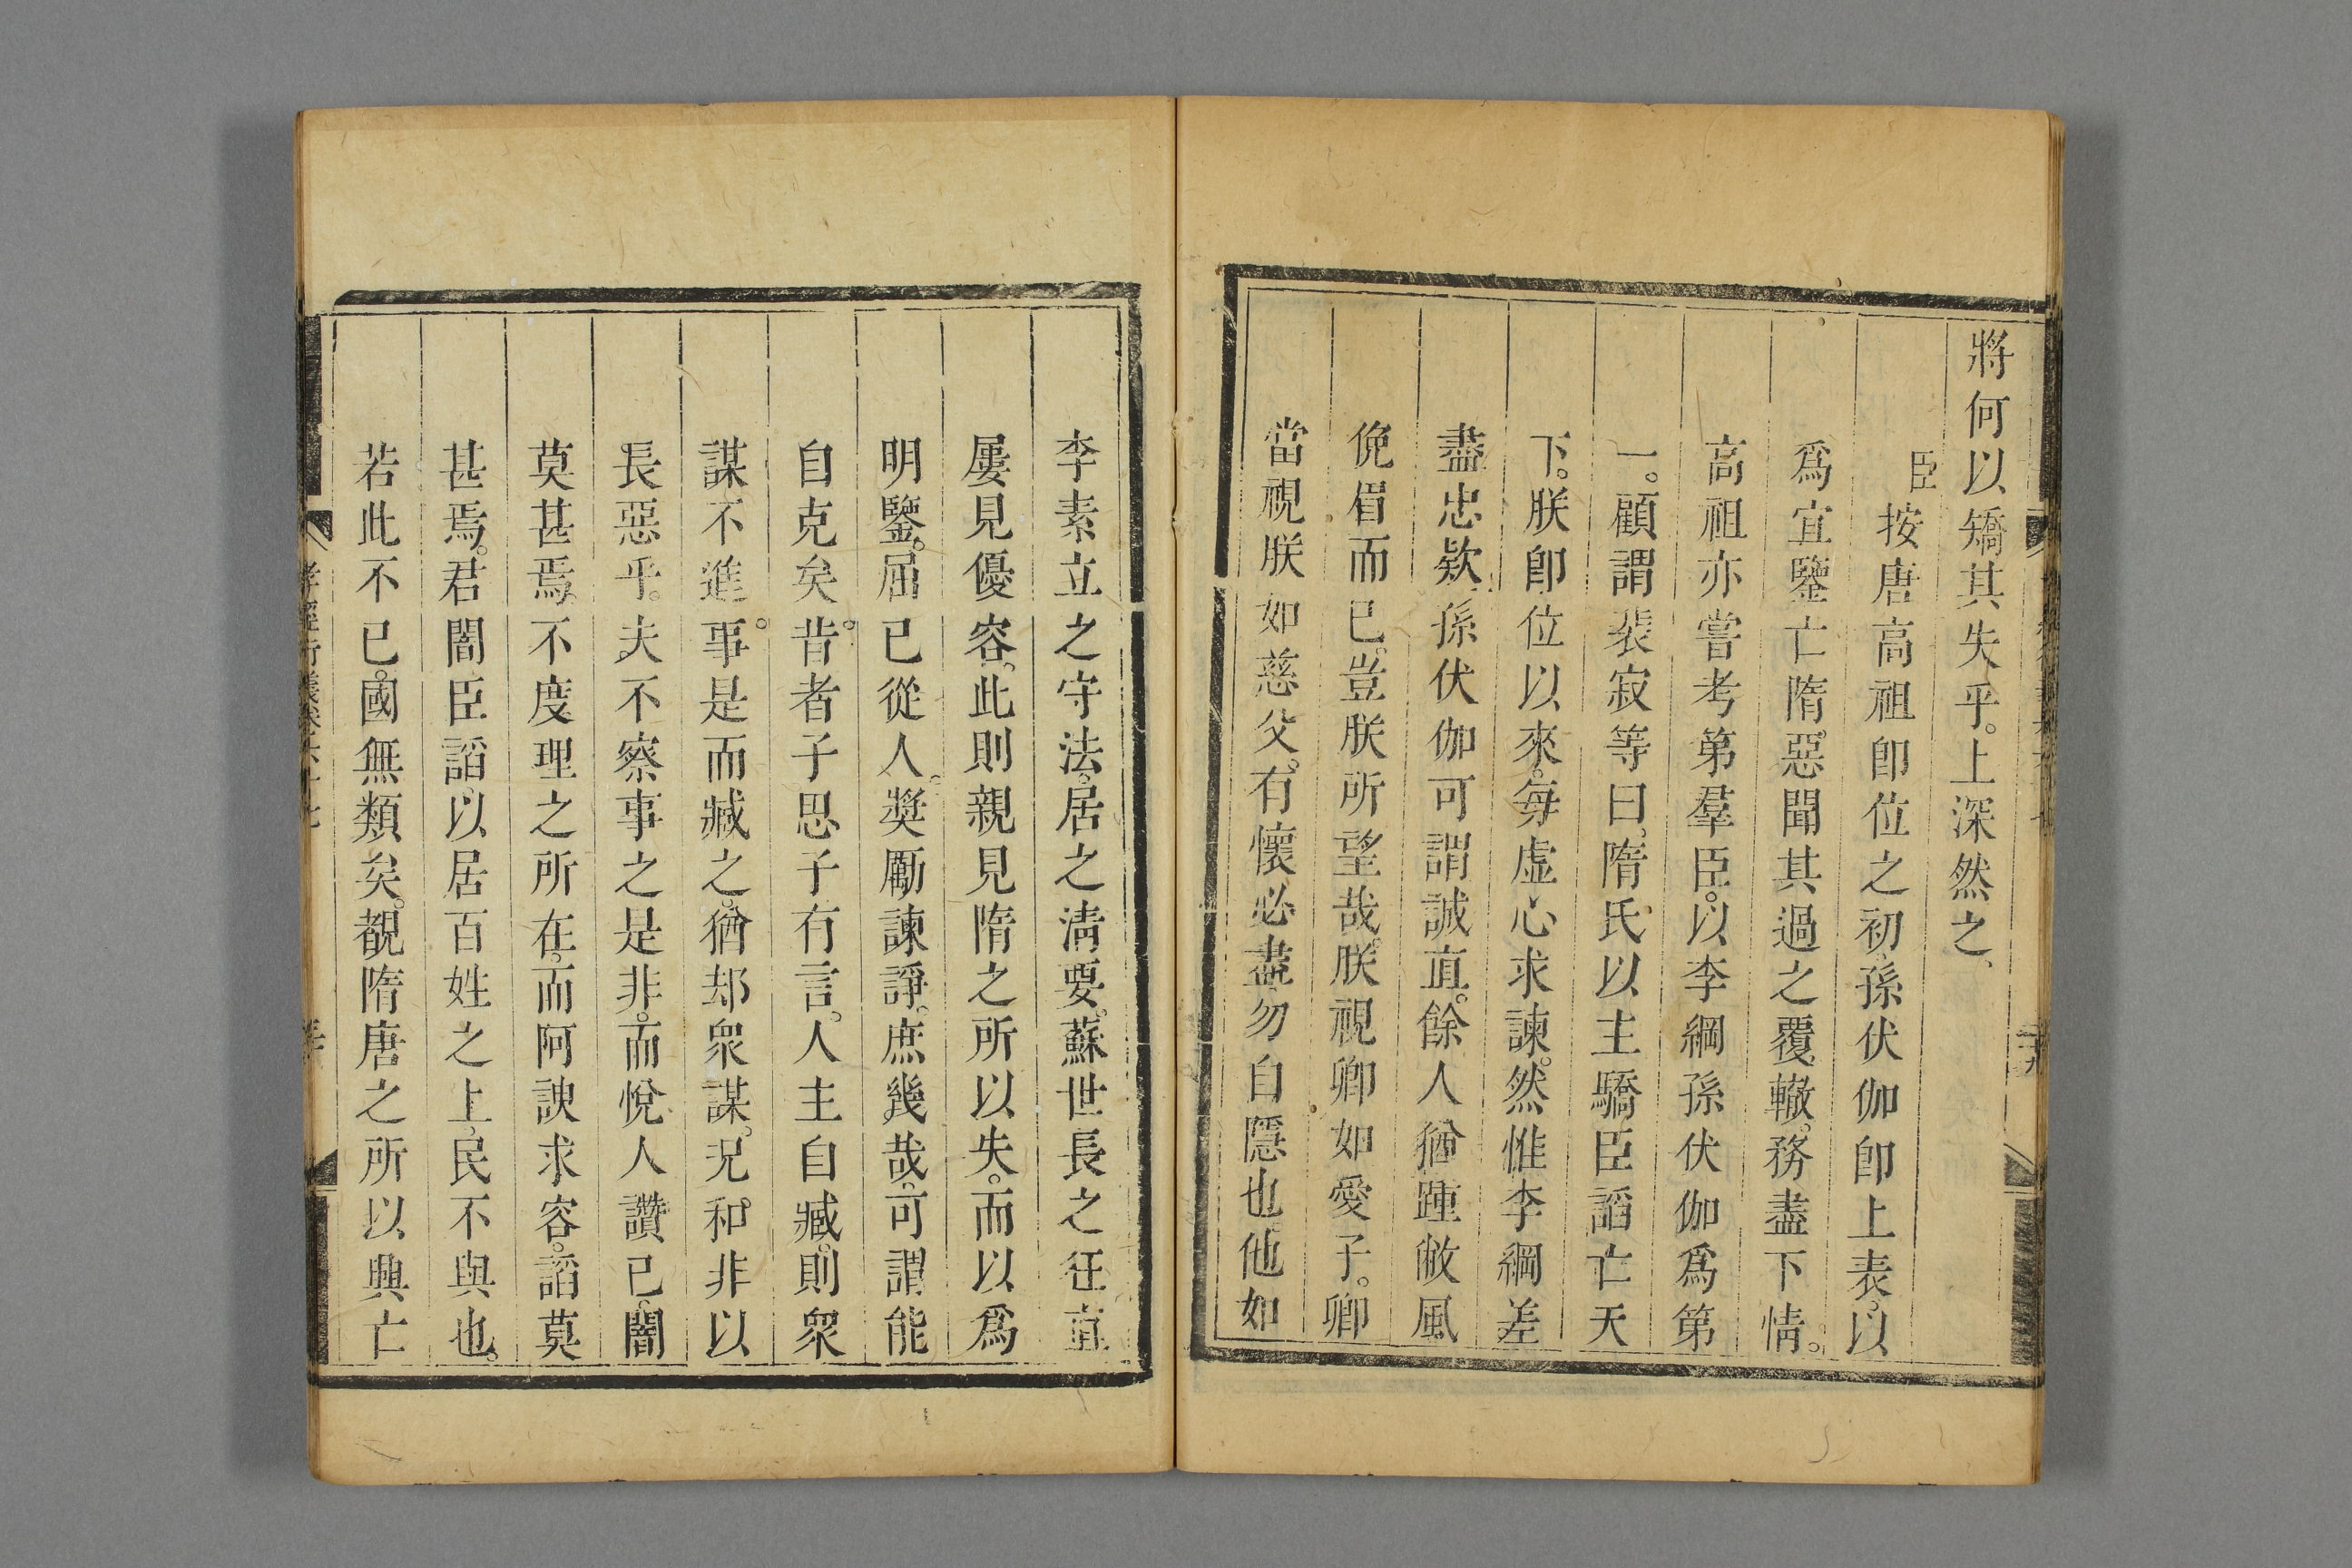 將何以矯其失乎。上深然之、
臣按唐高祖卽位之初、孫伏伽卽上表。以
爲宜鑒亡隋、惡聞其過之覆轍。務盡下情。
高祖亦嘗考第羣臣。以李綱孫伏伽爲第
一。顧謂裴寂等曰、隋氏以主驕臣諂亡天
下。朕卽位以來。每虛心求諫。然惟李綱差
盡忠欵、孫伏伽可謂誠直。餘人猶踵敝風
俛眉而已。豈朕所望哉。朕視卿如愛子。卿
當視朕如慈父。有懷必盡、勿自隱也。他如
李素立之守法。居之淸要。蘇世長之狂直
屢見優容。此則親見隋之所以失。而以爲
明鑒。屈已從人。奬勵諫諍。庶幾哉、可謂能
自克矣。昔者子思子有言。人主自臧。則衆
謀不進。事是而臧之。猶却衆謀。況和非以
長惡乎。夫不察事之是非。而悅人讚已。闇
莫甚焉、不度理之所在、而阿諛求容。諂莫
甚焉。君闇臣諂、以居百姓之上、民不與也。
若此不已。國無類矣。觀隋唐之所以興亡
孝經衍義卷六十七